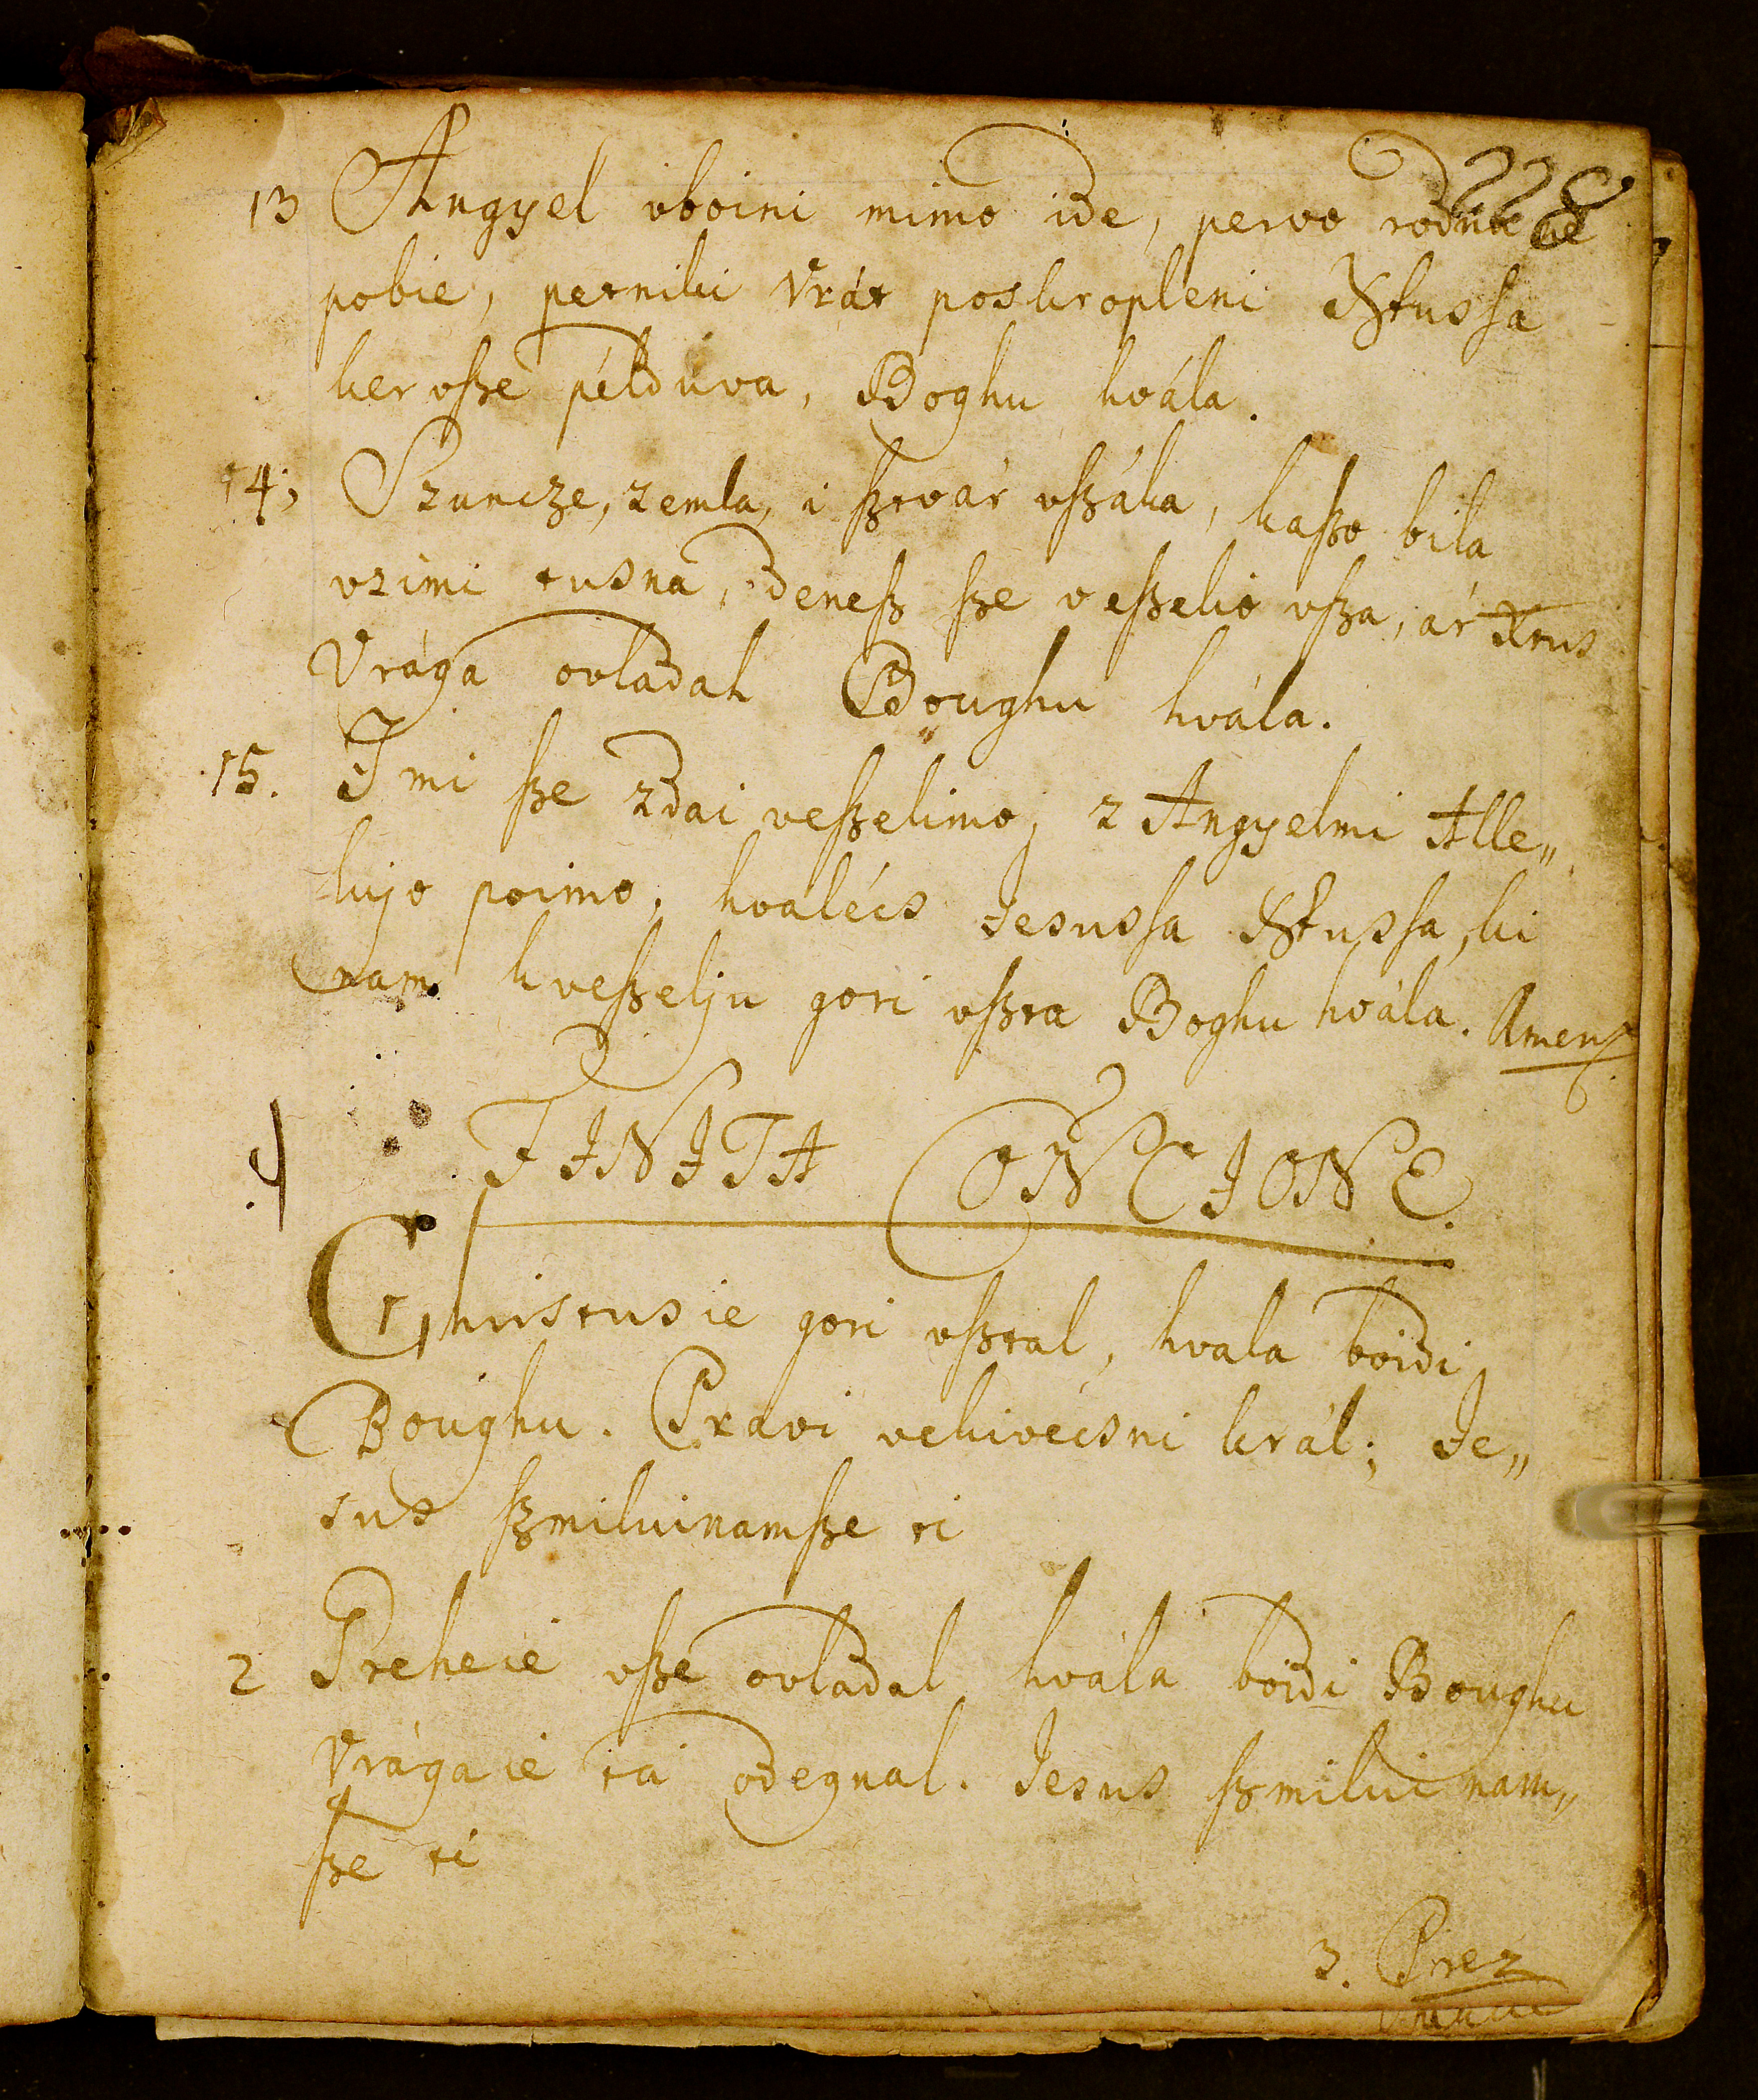 228
13 Angyel vboini mimo ide, pervo rodne ne
pobie, petniki Vrát poskropleni Xtussa
kervsze példuva, Boghu hvála.
14, Szuncze, zemla, i sztvár vszáka, kaszo bila
vzimi tusna, denesz sze veszelio vsza, ár Xtus
Vrága ovladah Boughu hvála.
15. I mi sze zdai veszelimo, z Angyelmi Alle„
lujo poimo, hvalécs Jesussa Xtussa, ki
nam kveszelju gori vszta Boghu hvála. Amen
4 FINITA CONCIONE.
Christus ie gori vsztal, hvala boidi
Boughu. Pravi vekivecsni král; Je„
sus szmiluinamsze ti
2 Grehe ie vsze ovladal hvála boidi Boughu
Vrága ie ta odegnal. Jesus szmilui nam„
sze ti
3. Prez